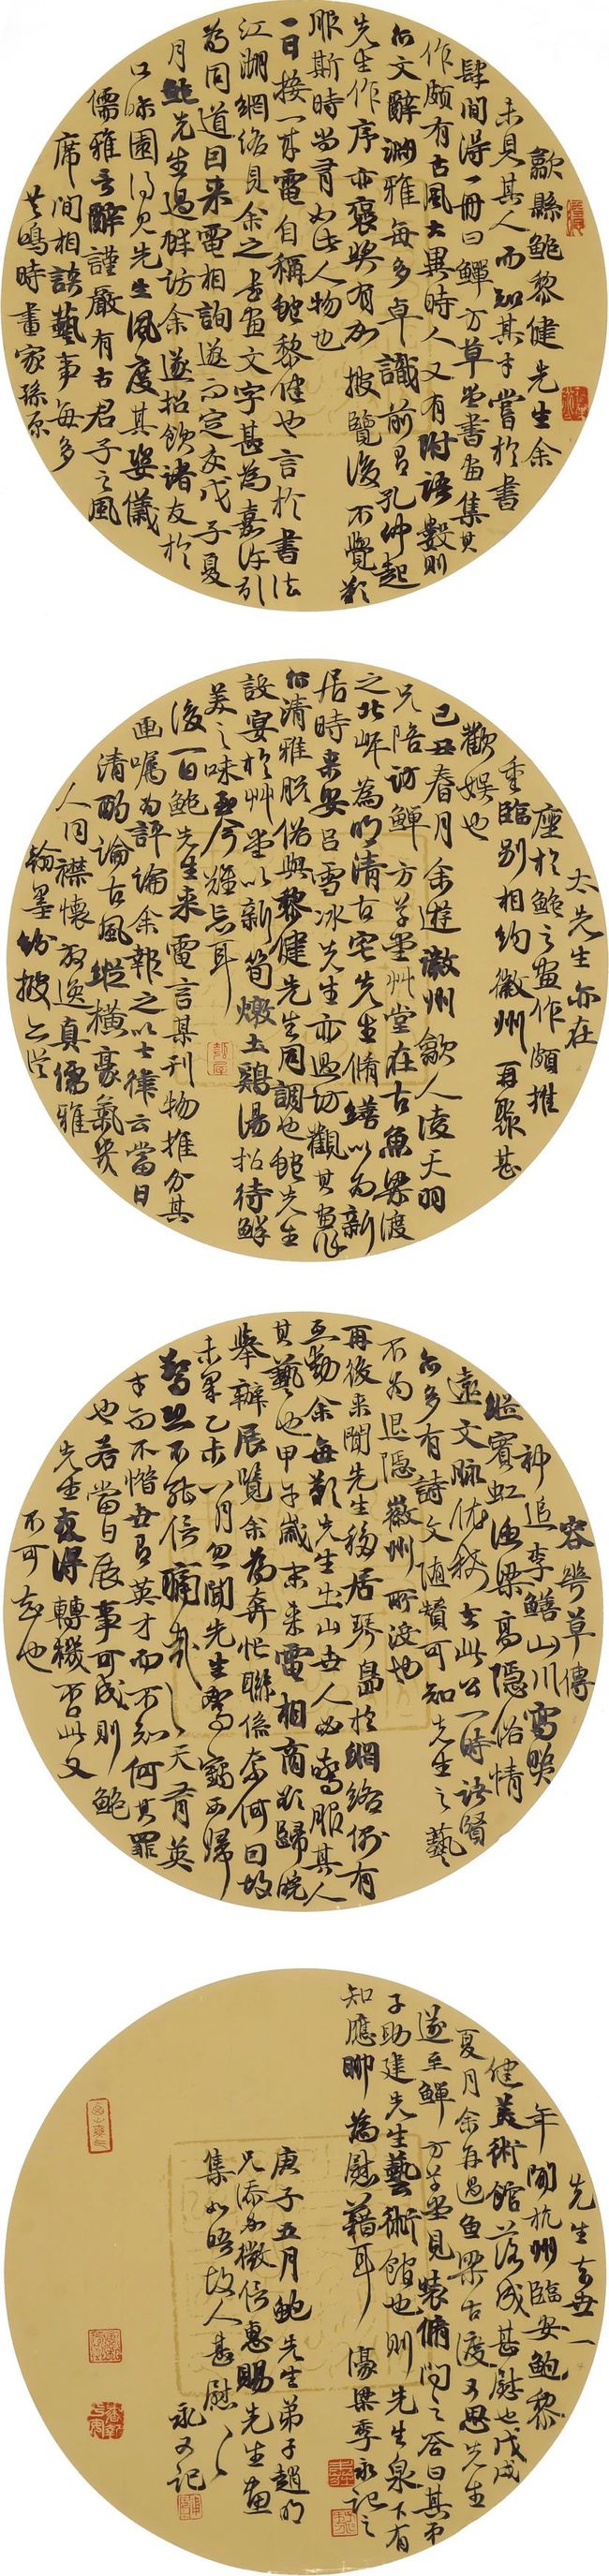 歙縣鮑黎健先生余
未見其人而知其才嘗於書
肆間得一冊曰鱓方草堂書畫集其
作頗有古風大異時人又有附語數則
而文辭淵雅每多卓識前有孔仲起
先生作序亦褒獎有加披覽後不覺歎
服斯時尚有如此人物也
一日接一來電自稱鮑黎健也言於書法
江湖網絡見余之書畫文字甚為嘉許引
為同道因來電相詢遂而定交戊子夏
月鮑先生過蚌訪余遂招飲諸友於
口味園得見先生風度其姿儀
儒雅言辭謹嚴有古君子之風
席間相談藝事每多
共鳴時畫家孫原
太先生亦在
座於鮑之畫作頗推
重臨別相約徽州再聚甚
歡娛也
己丑春月余遊徽州歙人凌天羽
兄陪訪鱓方草堂草堂在古魚梁渡
之北岸為明清古宅先生脩繕以為新
居時來安呂雪冰先生亦過訪觀其畫作
而清雅脫俗與黎健先生同調也鮑先生
設宴於草堂以新筍燉土鷄湯招待鮮
美之味至今難忘耳
後一日鮑先生來電言某刊物推介其
画囑為評論余報之以七律云當日
清酌論古風縱橫豪氣幾
人同襟懷放逸真儒雅
翰墨紛披亦從
容花草傳
神追李鱓山川寫照
繼賓虹漁梁高隱俗情
遠文脉優秘在此公一時諸賢
亦多有詩文随贊可知先生之藝
不為退隱徽州所没也
再後来聞先生移居琴島於網絡偶有
互動余每歎先生出山世人必驚服其人
其藝也甲午歲末来電相商欲歸皖
舉辦展覽余為奔忙聯係奈何因故
未果乙未八月忽聞先生駕鶴西歸
驚恐不能信痛哉〻天有英
才而不惜世有英才而不知何其罪
也若當日展事可成則鮑
先生或得轉機否此又
不可知也
先生去世一
年聞杭州臨安鮑黎
健美術館落成甚慰也戊戌
夏月余再過魚梁古渡又思先生
遂至鱓方草堂見裝脩問之答曰其弟
子助建先生藝術館也則先生泉下有
知應聊為慰藉耳 濠梁季永記之
庚子五月鮑先生弟子趙明
兄添加微信惠賜先生畫
集如晤故人甚慰〻
永又記